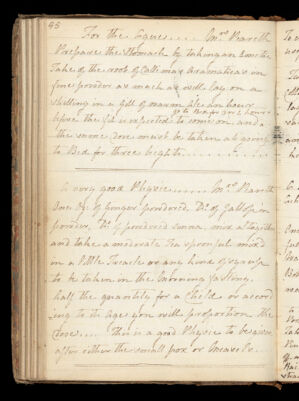 85
For the Ague . . . . Mrs. Peareth
Prepare the Stomach by taking an Emetic
Take of the root of Callimus Aromaticus in
fine powder as much as will lay on a
Shilling in a Gill of warm Ale an hour
go to Bed for 3 or 4 hours
before the fit is expected to come on, and
the same Dose must be taken at going
to Bed for three nights . . . . . . . .
A very good Physic . . . . . Mrs. Peareth
One oz. of ginger powdered, Do. of Jallop in
powder, Do. of powdered Senna, mix altogether
and take a moderate Tea spoonful mixed
in a little Treacle or any kind of syrup
to be taken in the Morning fasting,
half the quantity for a Child or accord
ing to its age you will proportion the
Dose . . . this is a good Physic to be given
after either the small pox or Measels.